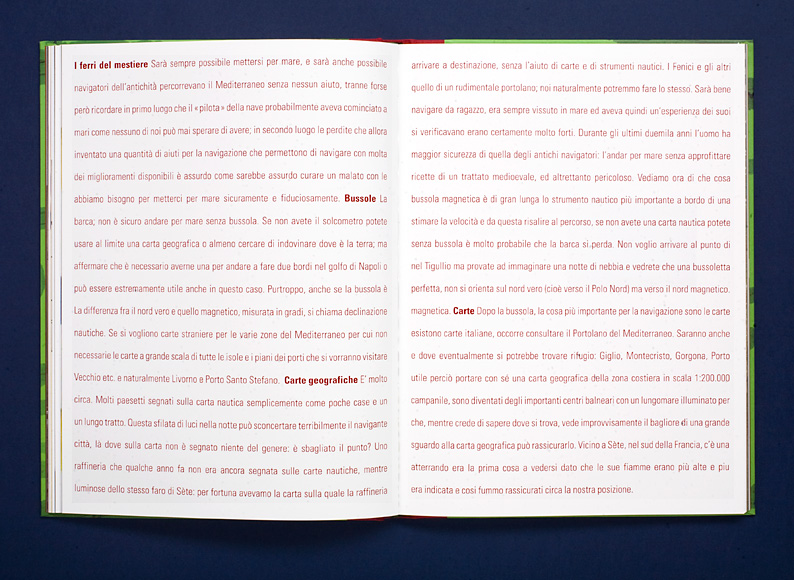 I ferri del mestiere Sarà sempre possibile mettersi per mare, e sarà anche possibile arrivare a destinazione, senza l'aiuto di carte e di strumenti nautici. I Fenici e gli altri
navigatori dell'antichità percorrevano il Mediterraneo senza nessun aiuto, tranne forse quello di un rudimentale portolano; noi naturalmente potremmo fare lo stesso. Sarà bene
però ricordare in primo luogo che il «pilota» della nave probabilmente aveva cominciato a navigare da ragazzo, era sempre vissuto in mare ed aveva quindi un'esperienza dei suoi
mari come nessuno di noi può mai sperare di avere; in secondo luogo le perdite che allora si verificavano erano certamente molto forti. Durante gli ultimi duemila anni l'uomo ha
inventato una quantità di aiuti per la navigazione che permettono di navigare con molta maggior sicurezza di quella degli antichi navigatori: l'andar per mare senza approfittare
dei miglioramenti disponibili è assurdo come sarebbe assurdo curare un malato con le ricette di un trattato medioevale, ed altrettanto pericoloso. Vediamo ora di che cosa
abbiamo bisogno per metterci per mare sicuramente e fiduciosamente. Bussole La bussola magnetica è di gran lunga lo strumento nautico più importante a bordo di una
barca; non è sicuro andare per mare senza bussola. Se non avete il solcometro potete stimare la velocità e da questa risalire al percorso, se non avete una carta nautica potete
usare al limite una carta geografica o almeno cercare di indovinare dove è la terra; ma senza bussola è molto probabile che la barca si.perda. Non voglio arrivare al punto di
affermare che è necessario averne una per andare a fare due bordi nel golfo di Napoli o nel Tigullio ma provate ad immaginare una notte di nebbia e vedrete che una bussoletta
può essere estremamente utile anche in questo caso. Purtroppo, anche se la bussola è perfetta, non si orienta sul nord vero (cioè verso il Polo Nord) ma verso il nord magnetico.
La differenza fra il nord vero e quello magnetico, misurata in gradi, si chiama declinazione magnetica. Carte Dopo la bussola, la cosa più importante per la navigazione sono le carte
nautiche. Se si vogliono carte straniere per le varie zone del Mediterraneo per cui non esistono carte italiane, occorre consultare il Portolano del Mediterraneo. Saranno anche
necessarie le carte a grande scala di tutte le isole e i piani dei porti che si vorranno visitare o dove eventualmente si potrebbe trovare rifugio: Giglio, Montecristo, Gorgona, Porto
Vecchio etc. e naturalmente Livorno e Porto Santo Stefano. Carte geografiche E' molto utile perciò portare con sé una carta geografica della zona costiera in scala 1:200.000
circa. Molti paesetti segnati sulla carta nautica semplicemente come poche case e un campanile, sono diventati degli importanti centri balneari con un lungomare illuminato per
un lungo tratto. Questa sfilata di luci nella notte può sconcertare terribilmente il navigante che, mentre crede di sapere dove si trova, vede improvvisamente il bagliore di una grande
città, là dove sulla carta non è segnato niente del genere: è sbagliato il punto? Uno sguardo alla carta geografica può rassicurarlo. Vicino a Sète, nel sud della Francia, c'è una
raffineria che qualche anno fa non era ancora segnata sulle carte nautiche, mentre atterrando era la prima cosa a vedersi dato che le sue fiamme erano più alte e piu
luminose dello stesso faro di Sète: per fortuna avevamo la carta sulla quale la raffineria era indicata e cosi fummo rassicurati circa la nostra posizione.